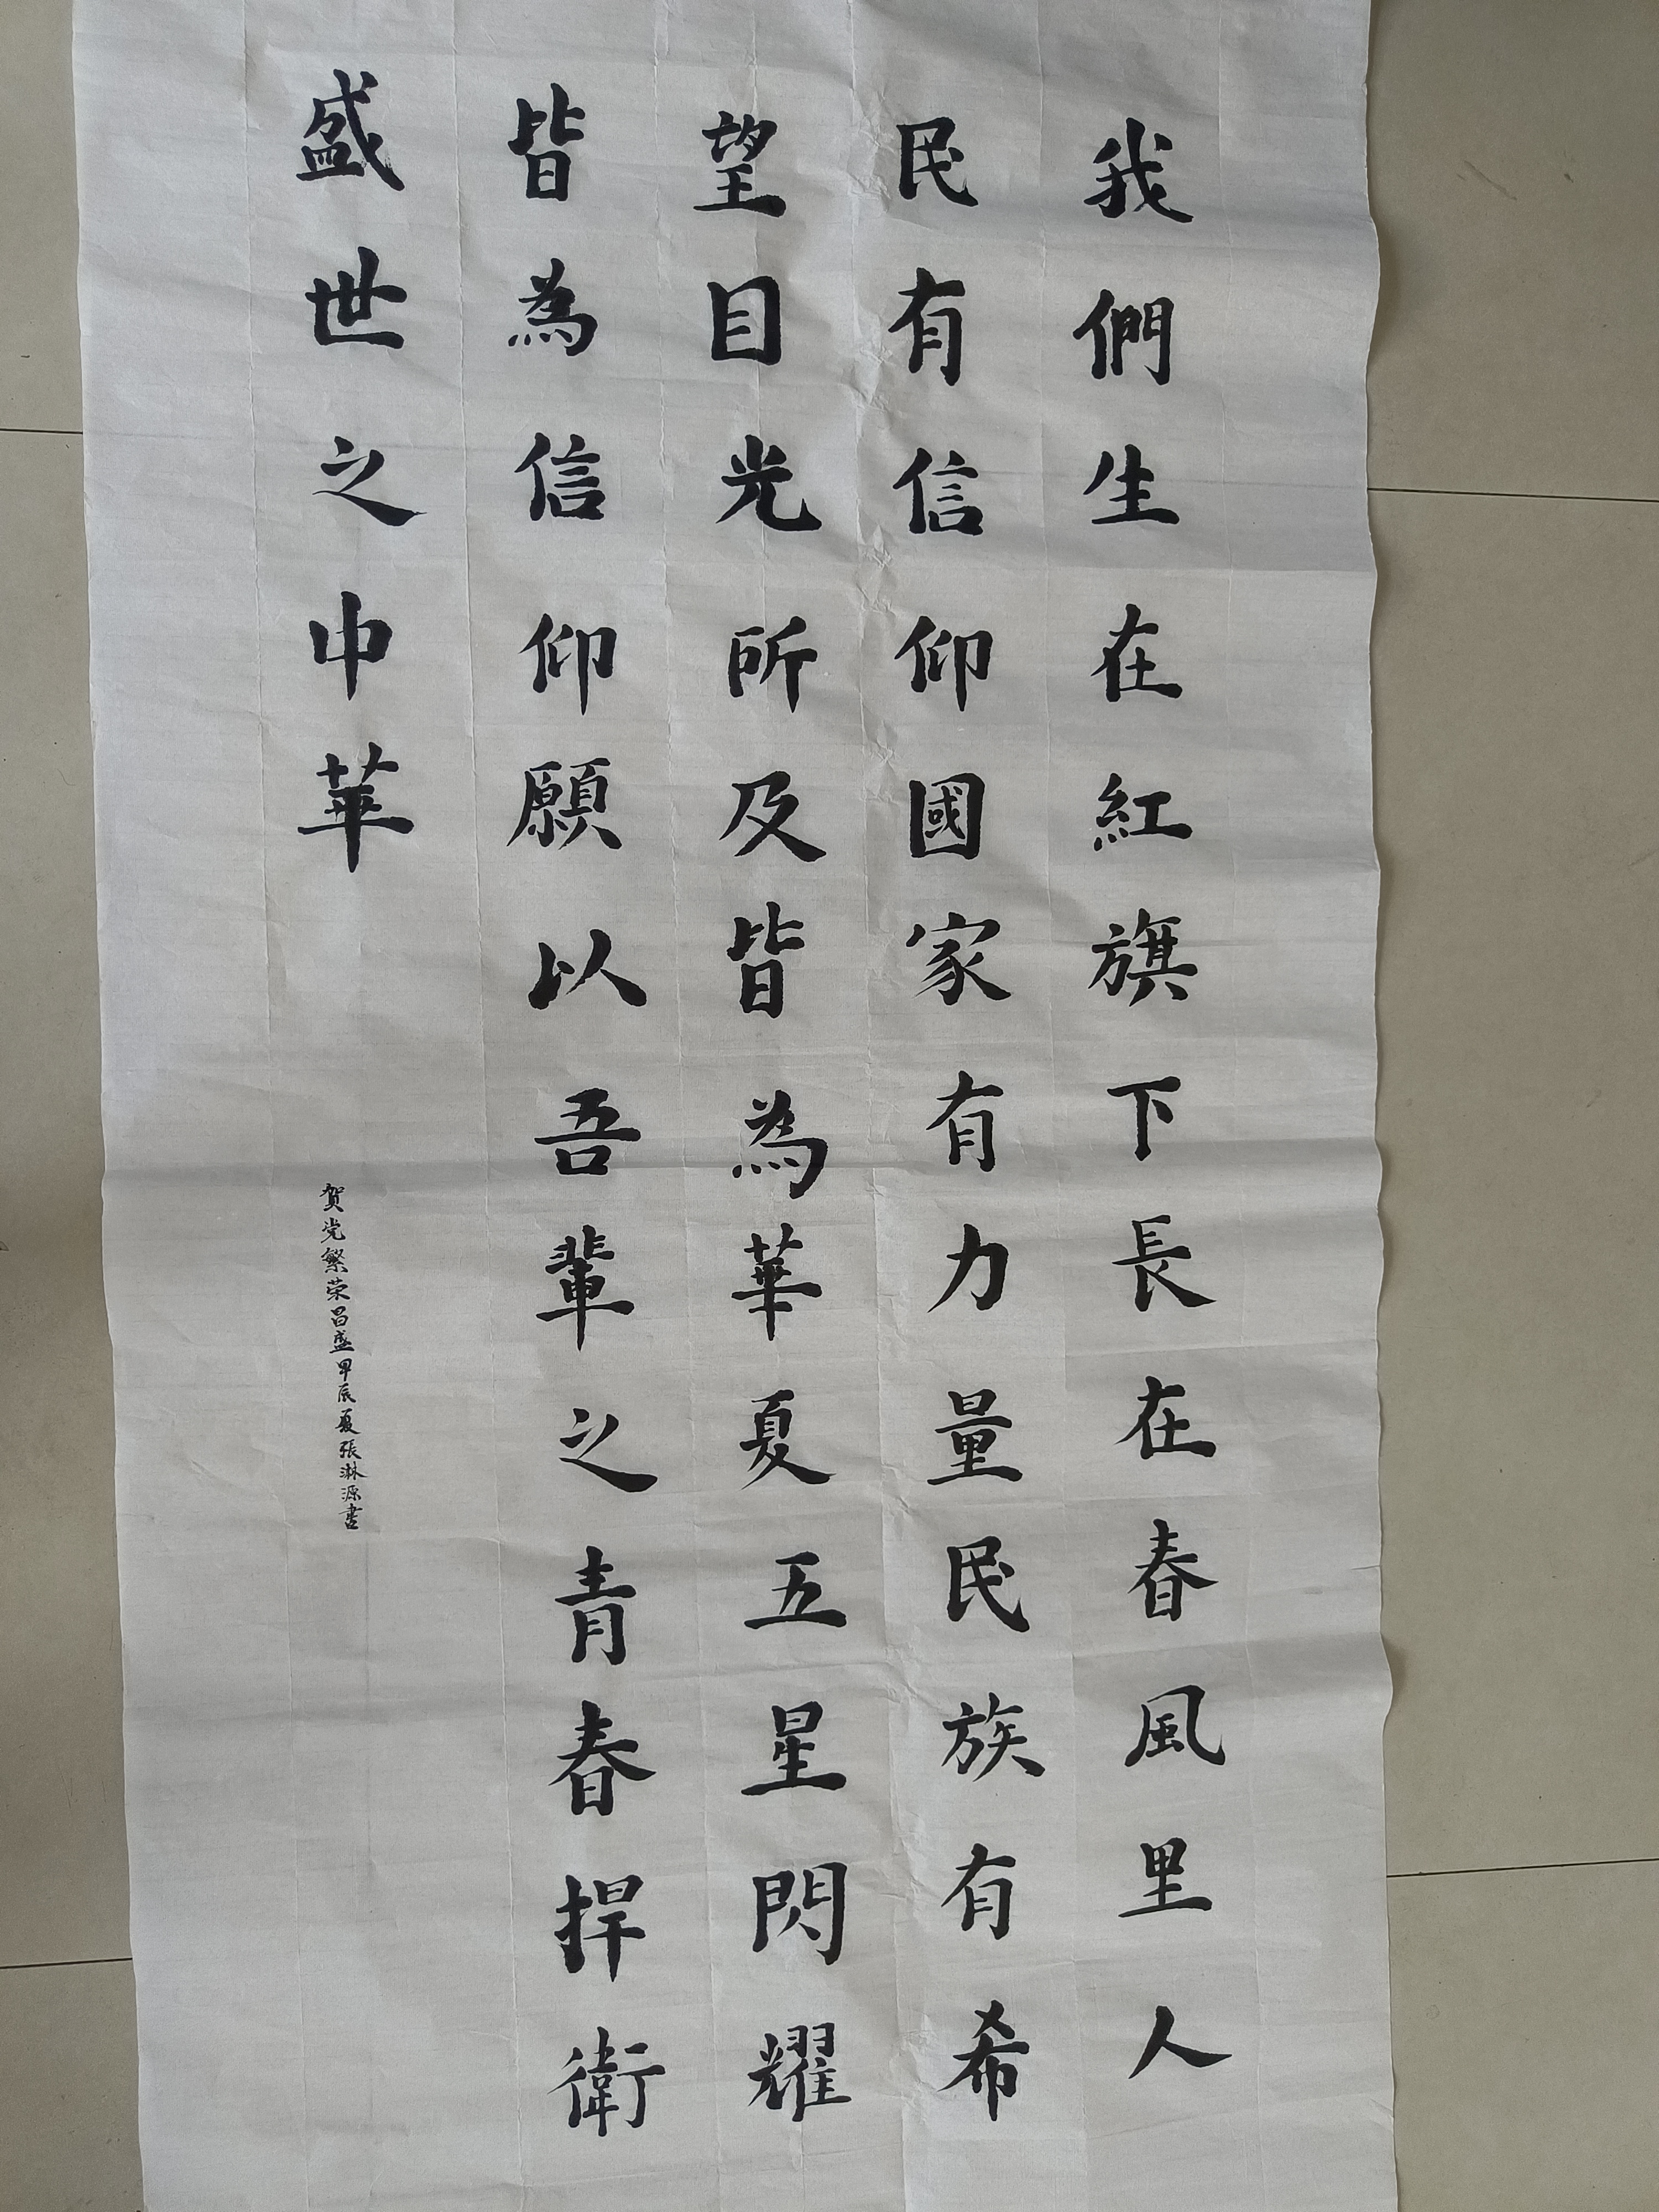 我們生在紅旗下長在春風里人
民有信仰國家有力量民族有希
望目光所及皆為華夏五星閃耀
皆為信仰願以吾輩之青春捍衛
盛世之中華
贺党繁荣昌盛甲辰夏張淋源書